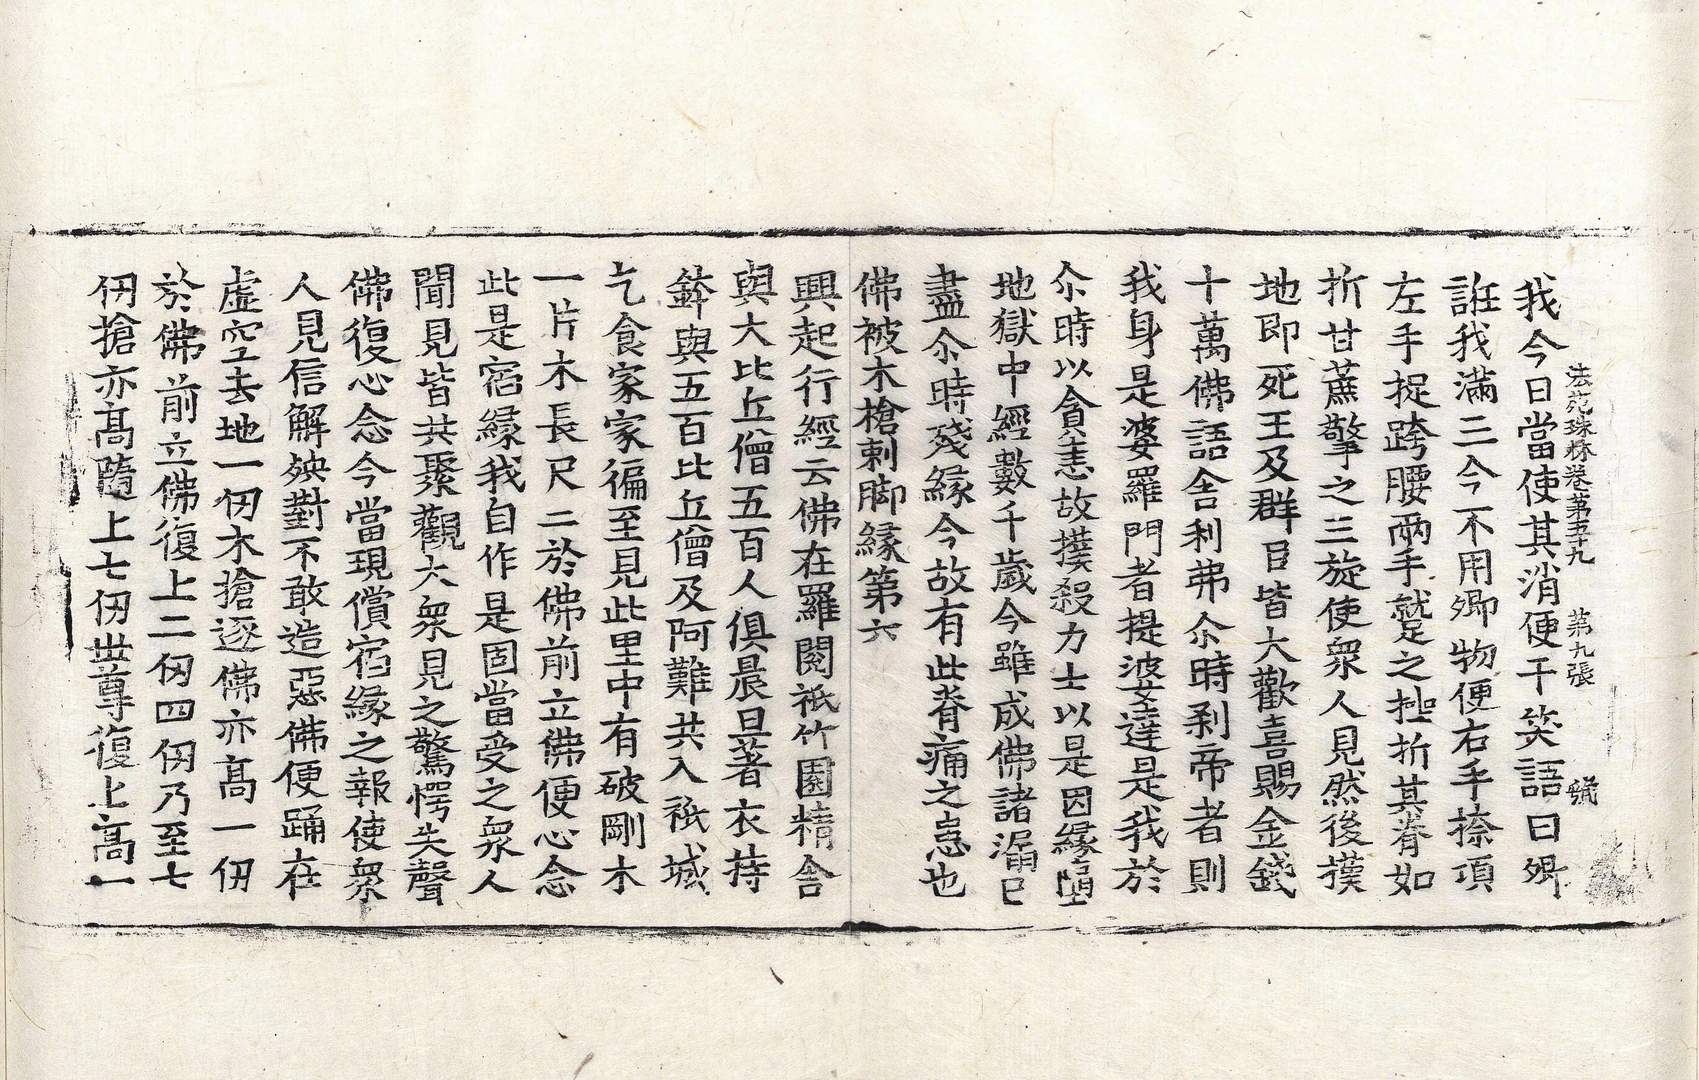 法苑珠林卷第五十九 第九張 號
我今日當使其消便干笑語曰卿
誑我滿三今一不用卿物便右手捺項
左手捉跨腰兩手蹵之挫折其脊如
折甘蔗擎之三旋使衆人見然後撲
地即死王及群臣皆大歡喜賜金錢
十萬佛語舍利弗尒時剎帝者則
我身是婆羅門者提婆達是我於
尒時以貪恚故撲殺力士以是因緣墮
地獄中經數千歲今雖成佛諸漏已
盡尒時殘緣今故有此脊痛之患也
佛被木槍刺脚緣第六
興起行經云佛在羅閱祇竹園精舍
與大比丘僧五百人俱晨旦著衣持
鉢與五百比丘僧及阿難共入祇城
乞食家家徧至見此里中有破剛木
一片木長尺二於佛前立佛便心念
此是宿緣我自作是固當受之衆人
聞見皆共聚觀大衆見之驚愕失聲
佛復心念今當現償宿緣之報使衆
人見信解殃對不敢造惡佛便踊在
虛空去地一仞木搶逐佛亦高一仞
於佛前立佛復上二仞四仞乃至七
仞搶亦高隨上七仞世尊復上高一